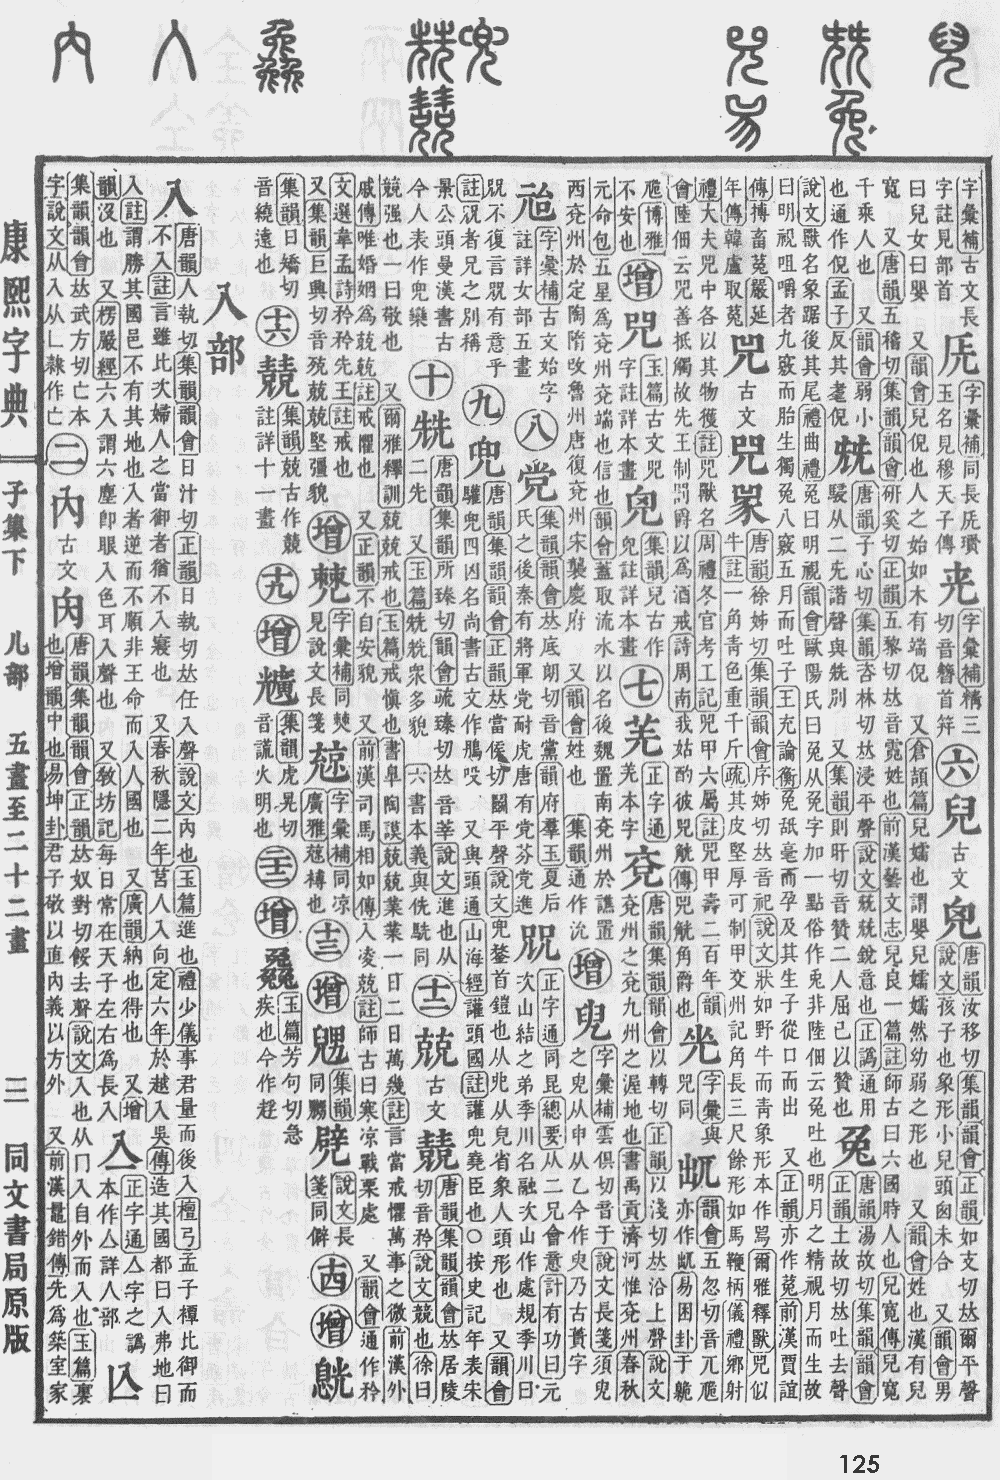 康熙字典 子集下 儿部 五畫至二十二畫 三 同文書局原版
字彙補古文長字註見部首 兏 字彙補同長兏瓚玉名見穆天子傳 字彙補精三切音簪首筓 六 兒 古文 唐韻汝移切集韻韻會正韻如支切𠀤爾平聲說文孩子也象形小兒頭囟未合 又韻會男
曰兒女曰嬰 又韻會兒倪也人之始如木有端倪 又倉頡篇兒嬬也謂嬰兒嬬嬬然幼弱之形也 又韻會姓也漢有兒
寬 又唐韻五稽切集韻韻會硏奚切正韻五黎切𠀤音霓姓也前漢藝文志兒良一篇註師古曰六國時人也兒寬傳兒寬
千乘人也 又韻會弱小也通作倪孟子反其耄倪 兟 唐韻子心切集韻咨林切𠀤浸平聲說文兟兟銳意也正譌通用 駸从二兂諧聲與兟別 又集韻則旰切音贊二人屈己以贊也 兔 唐韻湯故切集韻韻會正韻土故切𠀤吐去聲
說文獸名象踞後其尾禮曲禮兔曰明視韻會歐陽氏曰兔从兔字加一點俗作兎非陸佃云兔吐也明月之精視月而生故
曰明視咀嚼者九竅而胎生獨兔八竅五月而吐子王充論衡兔舐毫而孕及其生子從口而出 又正韻亦作菟前漢賈誼
傳搏畜菟嚴延年傳韓盧取菟 兕 古文 唐韻徐姊切集韻韻會序姊切𠀤音祀說文狀如野牛而靑象形本作𤉡爾雅釋獸兕似
牛註一角靑色重千斤疏其皮堅厚可制甲交州記角長三尺餘形如馬鞭柄儀禮鄕射
禮大夫兕中各以其物獲註兕獸名周禮冬官考工記兕甲六屬註兕甲壽二百年韻
會陸佃云兕善抵觸故先王制罰爵以爲酒戒詩周南我姑酌彼兕觥傳兕觥角爵也 光 字彙與兕同 韻會五忽切音兀卼亦作 易困卦于臲
卼博雅不安也 增 玉篇古文兕字註詳本畫 集韻兒古作 註詳本畫 七 羌 正字通羌本字 兗 唐韻集韻韻會以轉切正韻以淺切𠀤沿上聲說文
兗州之兗九州之渥地也書禹貢濟河惟兗州春秋
元命包五星爲兗州兗端也信也韻會蓋取流水以名後魏置南兗州於譙置
西兗州於定陶隋攺魯州唐復兗州宋襲慶府 又韻會姓也 集韻通作沇 增 字彙補雲俱切音于說文長箋須臾之臾从申从乙今作臾乃古蕢字
字彙補古文始字註詳女部五畫 八 党 集韻韻會𠀤底朗切音黨韻府羣玉夏后氏之後秦有將軍党耐虎唐有党芬党進 正字通同昆總要从二兄會意計有功曰元次山結之弟季川名融次山作處規季川曰
兄不復言兄有意乎註兄者兄之別稱 九 兜 唐韻集韻韻會正韻𠀤當侯切鬬平聲說文兜鍪首鎧也从兆从兒省象人頭形也 又韻會驩兜四凶名尚書古文作鴅吺 又與頭通山海經讙頭國註讙兜堯臣也 ○ 按史記年表宋
景公頭曼漢書古今人表作兜欒 十 兟 唐韻集韻所臻切韻會疏臻切𠀤音莘說文進也从二先 又玉篇兟兟衆多貌 六書本義與侁駪同 十二 兢 古文 唐韻集韻韻會𠀤居陵切音矜說文競也徐曰
競强也一曰敬也 又爾雅釋訓兢兢戒也玉篇戒愼也書臯陶謨兢兢業業一日二日萬幾註言當戒懼萬事之微前漢外
戚傳唯婚姻爲兢兢註戒懼也 又正韻不自安貌 又前漢司馬相如傳入凌兢註師古曰寒凉戰栗處 又韻會通作矜
文選韋孟詩矜矜先王註戒也 又集韻巨興切音殑兢兢堅彊貌 增 字彙補同僰見說文長箋 字彙補同凉廣雅 也 十三 增 集韻同嬲 說文長箋同僻 十四 增
集韻曰矯切音繞遠也 十六 競 集韻兢古作競註詳十二畫 十九 增 集韻虎晃切音謊火明也 二十二 增 玉篇芳句切急疾也今作赴
入部
入 唐韻人執切集韻韻會日汁切正韻日執切𠀤任入聲說文內也玉篇進也禮少儀事君量而後入檀弓孟子禫比御而
不入註言雖比次婦人之當御者猶不入寢也 又春秋隱二年莒人入向定六年於越入吳傳造其國都曰入弗地曰
入註謂勝其國邑不有其地也入者逆而不順非王命而入人國也 又廣韻納也得也 又增韻沒也 又楞嚴經六入謂六塵卽眼入色耳入聲也 又敎坊記每日常在天子左右爲長入 亼 本作亼詳人部 正字通亼字之譌 亾
集韻韻會𠀤武方切亡本字說文从入从乚隷作亡 二 內 古文 唐韻集韻韻會正韻𠀤奴對切餒去聲說文入也从冂入自外而入也玉篇裏也增韻中也易坤卦君子敬以直內義以方外 又前漢鼂錯傳先爲築室家
125